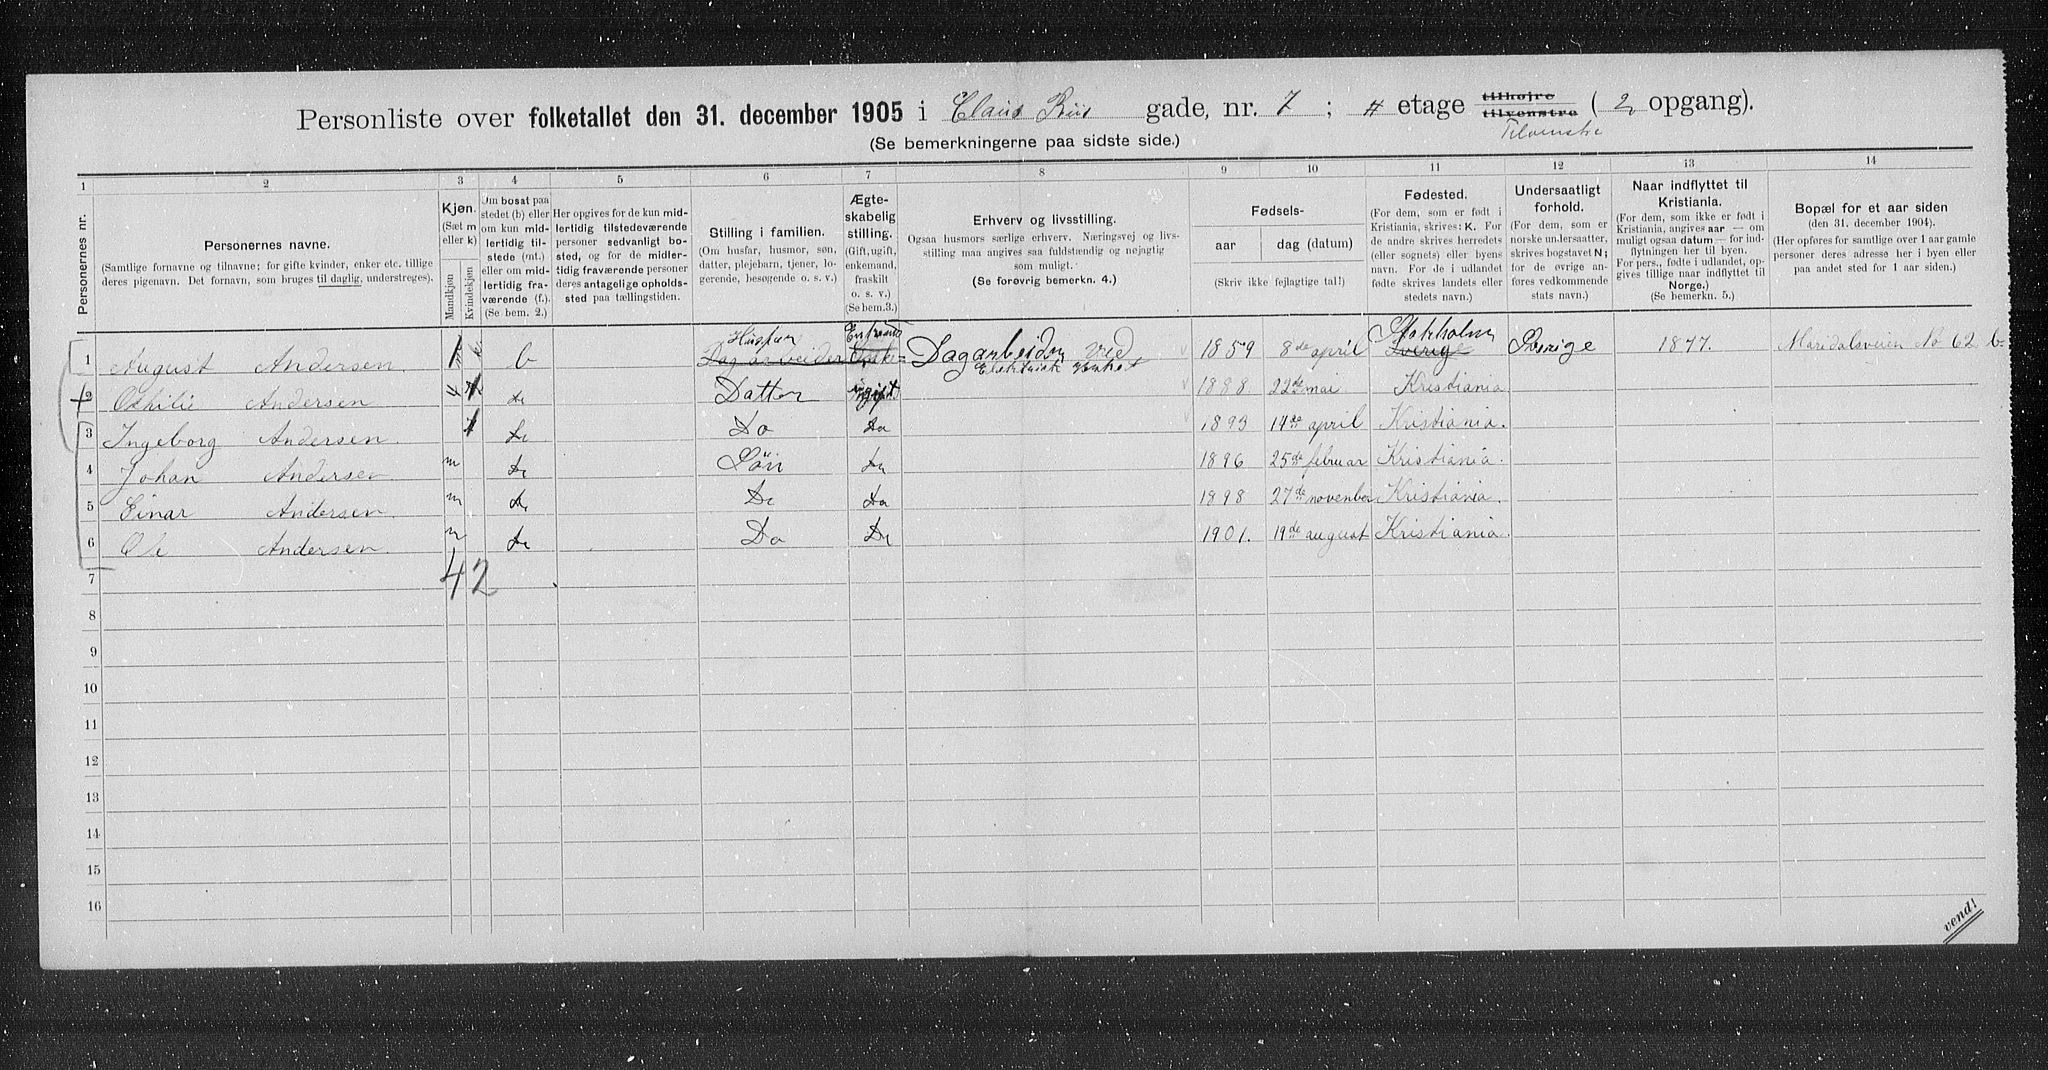 Personliste over folketallet den 31. december 1905 i Claus Riis gade, nr. 7; 4 etage tilhøjre tilvenstre (2 opgang).
Tilvenstre
(Se bemerkningerne paa sidste side.)
1 2 3 4 5 6 7 8 9 10 11 12 13 14
Personernes nr.
Personernes navne.
(Samtlige fornavne og tilnavne; for gifte kvinder, enker etc. tillige
deres pigenavn. Det fornavn, som bruges til daglig, understreges).
Kjøn.
(Sæt m
eller k)
Mandkjøn
Kvindekjøn
Om bosat paa
stedet (b) eller
om kun mid-
lertidig til-
stede (mt.)
eller om mid-
lertidig fra-
værende (f.).
(Se bem. 2.)
Her opgives for de kun mid-
lertidig tilstedeværende
personer sedvanlig bo-
sted, og for de midler-
tidig fraværende personer
deres antagelige opholds-
sted paa tællingstiden.
Stilling i familien.
(Om husfar, husmor, søn,
datter, plejebarn, tjener, lo-
gerende, besøgende o. s. v.)
Ægte-
skabelig
stilling.
(Gift, ugift,
enkemand,
fraskilt
o. s. v.)
(Se bem.3.)
Erhverv og livsstilling.
Ogsaa husmors særlige erhverv. Næringsvej og livs-
stilling maa angives saa fuldstændig og nejagtig
som muligt.
(Se forøvrig bemerkn. 4.)
Fødsels-
aar dag (datum)
(Skriv ikke fejlagtige tal!)
Fødested.
(For dem, som er født i
Kristiania, skrives: K. For
de andre skrives herredets
(eller sognets) eller byens
navn. For de i udlandet
fødte skrives landets eller
stedets navn.)
Undersaatligt
forhold.
(For dem, som er
norske undersaatter,
skrives bogstavet N;
for de øvrige an-
føres vedkommende
stats navn.)
Naar indflyttet til
Kristiania.
(For dem, som ikke er født i
Kristiania, angives aar — om
muligt ogsaa datum — for ind-
flytningen her til byen.
For pers., fødte i udlandet, op-
gives tillige naar indflyttet til
Norge.)
(Se bemerkn. 5.)
Bopæl for et aar siden
(den 31. december 1904).
(Her opføres for samtlige over 1 aar gamle
personer deres adresse her i byen eller
paa andet sted for 1 aar siden.)
Husfar Stokholm
1 August Andersen b Dagarbeider Dagarbeider ved 1859 8de april Sverige Sverige 1877. Maridalsveien No 62 b
Elektrisk Verket
2 Othilie Andersen do Datter ugift 1888 22de mai Kristiania
3 Ingeborg Andersen do Do Do 1893 14de april Kristiania.
4 Johan Andersen m do Søn Do 1896 25de februar Kristiania.
5 Einar Andersen m do Do Do 1898 27de november Kristiania.
6 Ole Andersen m do Do Do 1901. 19de august Kristiania.
7 4 2
8
9
10
11
12
13
14
15
16
vend!